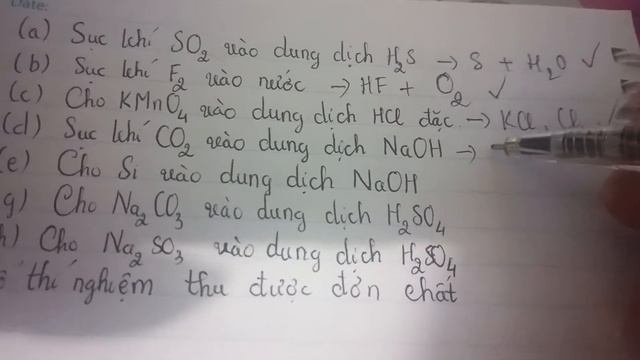 Date:
(a) Sục khí SO2 vào dung dịch H2S → S + H2O ✓
(b) Sục khí F2 vào nước → HF + O2 ✓
(c) Cho KMnO4 vào dung dịch HCl đặc → KCl, Cl
(d) Sục khí CO2 vào dung dịch NaOH →
(e) Cho Si vào dung dịch NaOH
g) Cho Na2CO3 vào dung dịch H2SO4
h) Cho Na2SO3 vào dung dịch H2SO4
thí nghiệm thu được đơn chất